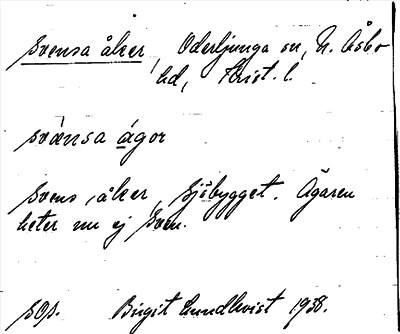 Svensa åker, Oderljunga sn, N. Åsbo
hd, Krist. l.
svänsa ågor
Svens åker, Sjöbygget. Ägaren
heter nu ej Sven.
sop. Birgit Lundkvist 1938.